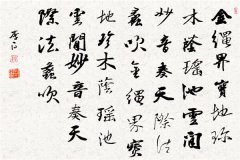 金繩界寶地珍
木蔭瑤池雲間
妙音奏天際法
蠡吹金繩界寶
地珍木蔭瑤池
雲間妙音奏天
際法蠡吹